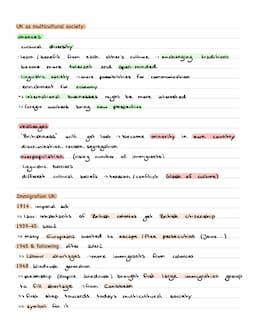 UK as multicultural society
chances
cultural diversity
learn / benefit from each other's culture → exchanging traditions
become more tolerant and open-minded
linguistic variety → more possibilities for communication
enrichment for economy
→ international businesses might be more interested
→ foreign workers bring new perspectives
challenges
"Britishness" will get lost → become minority in own country
discrimination, racism, segregation
overpopulation (rising number of immigrants)
linguistic barriers
different cultural beliefs → tension / conflicts (clash of culture)
Immigration UK
1914 imperial act
→ law: inhabitants of British colonies get British citizenship
1939-45 WW2
→ many Europeans wanted to escape / flee persecution (Jews...)
1945 & following after WW2
→ labour shortages → more immigrants from colonies
1948 windrush generation
→ steamship (Empire Windrush) brought first large immigration group
to fill shortage → from Caribbean
→ first step towards today's multicultural society
→ symbol for it